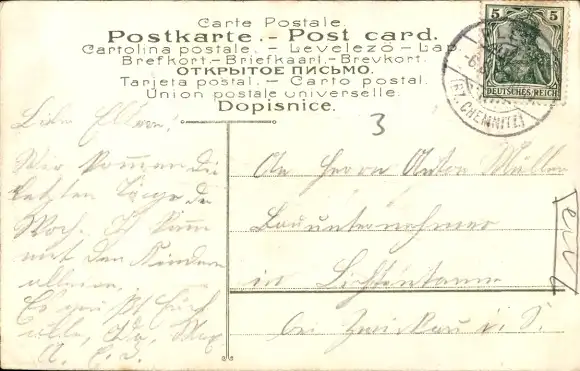 Carte Postale.
Postkarte. - Post card.
Cartolina postale. - Levelező - Lap
Brefkort. - Briefkaart. - Brevkort.
ОТКРЫТОЕ ПИСЬМО.
Tarjeta postal. - Carto postal.
Union postale universelle.
Dopisnice.
5 5
DEUTSCHES REICH
CHEMNITZ)
3
Liebe Eltern!
Wir kommen die
letzten Tage der
Woch. Ich komm
mit den Kindern
alleine.
Es grüßt Euch
alle,
An Herrn Anton Müller
Bauunternehmer
in Lichtentanne
bei Zwickau i. S.